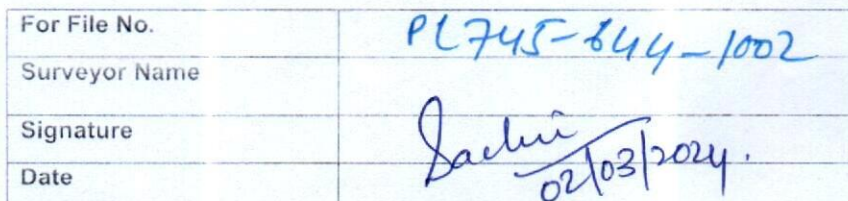 For File No. PL745-644-1002
Surveyor Name
Signature Sachin
Date 02/03/2024.